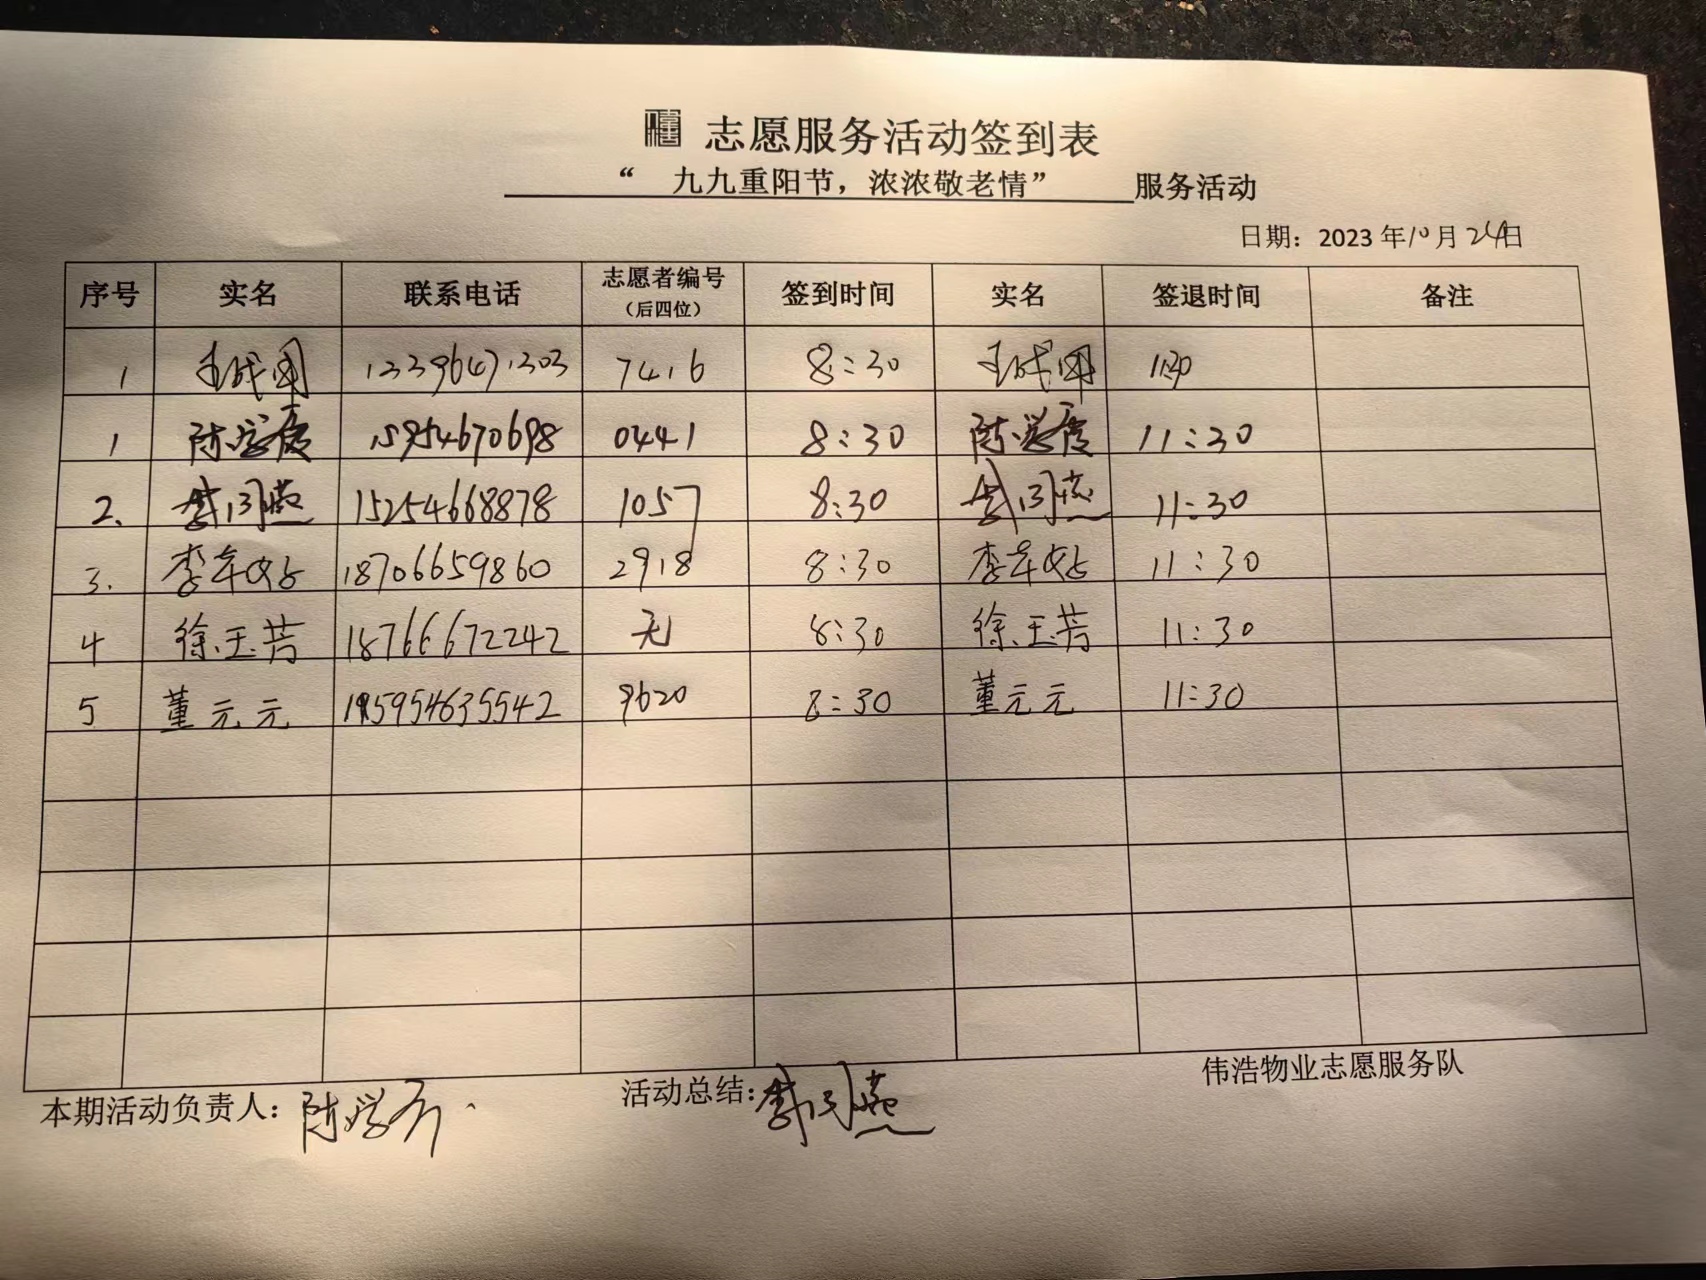 志愿服务活动签到表
“ 九九重阳节，浓浓敬老情” 服务活动
日期：2023年10月24日
序号 实名 联系电话 志愿者编号（后四位） 签到时间 实名 签退时间 备注
1 7416 8:30
1 15954670698 0441 8:30 11:30
2. 15254668878 1057 8:30 11:30
3. 李年 18706659860 2918 8:30 李年 11:30
4 徐玉芳 18766672242 无 8:30 徐玉芳 11:30
5 董元元 15954635542 9620 8:30 董元元 11:30
本期活动负责人： 活动总结： 伟浩物业志愿服务队